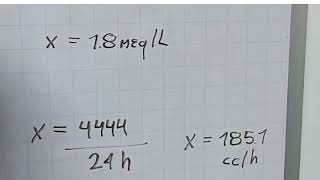 x = 1.8 meq/L
x = 4444
24 h
x = 185.1
cc/h